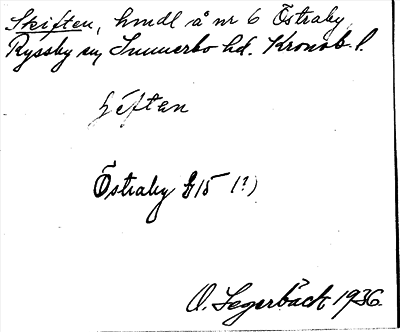 Skiften, hmdl å nr 6 Östraby,
Ryssby sn, Sunnerbo hd. Kronob. l.
Östraby 15 (?)
O. Segerbäck 1936.